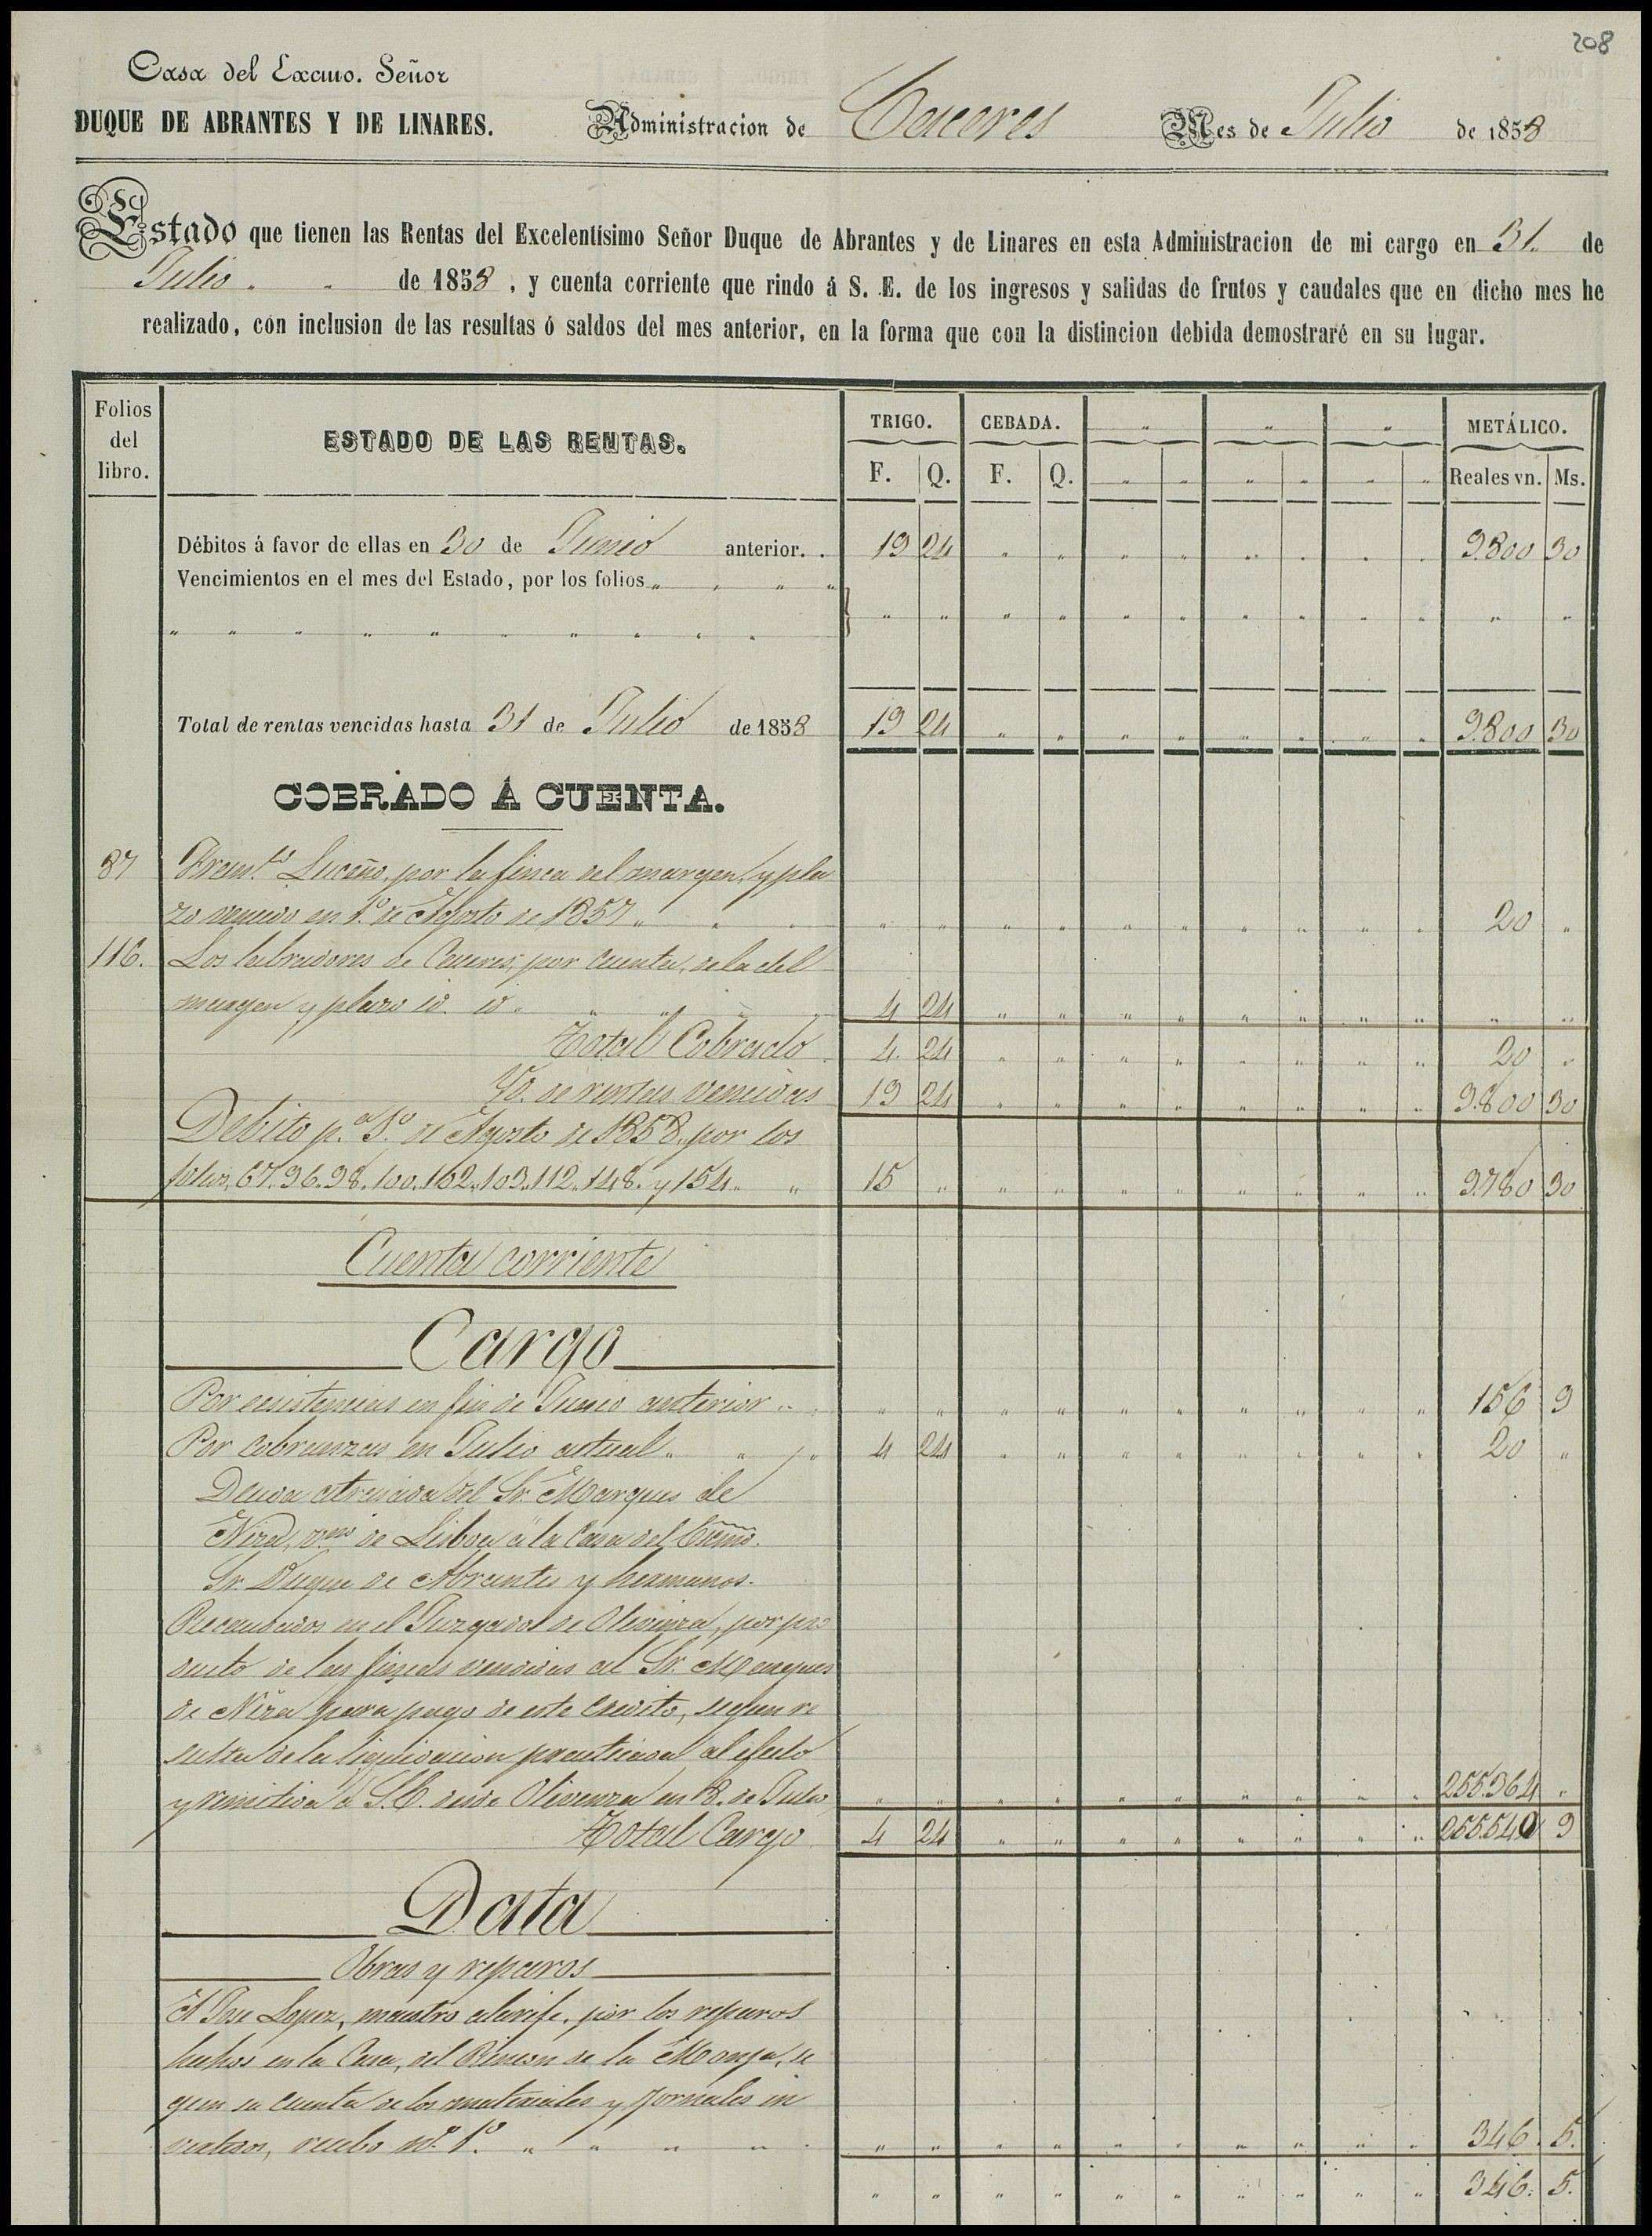 208
Casa del Excmo. Señor
DUQUE DE ABRANTES Y DE LINARES. Administracion de Caceres Mes de Julio de 1858
Estado que tienen las Rentas del Excelentísimo Señor Duque de Abrantes y de Linares en esta Administracion de mi cargo en 31. de
Julio. " de 1858, y cuenta corriente que rindo á S. E. de los ingresos y salidas de frutos y caudales que en dicho mes he
realizado, con inclusion de las resultas ó saldos del mes anterior, en la forma que con la distincion debida demostraré en su lugar.
Folios del libro. ESTADO DE LAS RENTAS. TRIGO. CEBADA. " " " METÁLICO.
F. Q. F. Q. " " " " " " Reales vn. Ms.
Débitos á favor de ellas en 30 de Junio anterior. . 19 24 " " " " " " " " 9.800 30
Vencimientos en el mes del Estado, por los folios " " " "
" " " " " " " " " " " " " " " " " " " " " "
Total de rentas vencidas hasta 31 de Julio de 1858 19 24 " " " " " " " " 9.800 30
COBRADO Á CUENTA.
87 Fran.co Luceño, por la finca del margen, y pla
zo vencido en 1.º de Agosto de 1857 " " " " " " " " " " " " " 20 "
116. Los labradores de Caceres, por cuenta, de la del
margen y plazo id. id. " " " 4 24 " " " " " " " " " "
Total Cobrado 4. 24 " " " " " " " " 20 "
Yd. de rentas vencidas 19 24 " " " " " " " " 9.800 30
Debito p.a 1.º de Agosto de 1858, por los
folios, 67. 96. 98. 100. 102. 109. 112. 148. y 154. " " 15 " " " " " " " " " 9.780 30
Cuenta corriente
Cargo
Por existencias en fin de Junio anterior " " " " " " " " " " " " 156 9
Por cobranzas en Julio actual " " " " 4 24 " " " " " " " " 20 "
Deuda atrasada del Sr. Marques de
Niza, v.no de Lisboa á la Casa del Excmo.
Sr. Duque de Abrantes y hermanos.
Recaudados en el Juzgado de Olivenza, por pro
ducto de las fincas vendidas al Sr. Marques
de Niza para pago de este credito, segun re
sulta de la liquidacion practicada al efecto
y remitida á S.E. desde Olivenza en 8. de Julio " " " " " " " " " " 255.364 "
Total Cargo 4 24 " " " " " " " " 255.540 9
Data
Obras y reparos
A Jose Lopez, maestro alarife, por los reparos
hechos en la Casa, del Rincon de la Monja, se
gun su cuenta de los materiales y jornales in
vertidos, recibo n.º 1.º " " " " " " " " " " " " " " " 346. 5.
" " " " " " " " " " 346. 5.